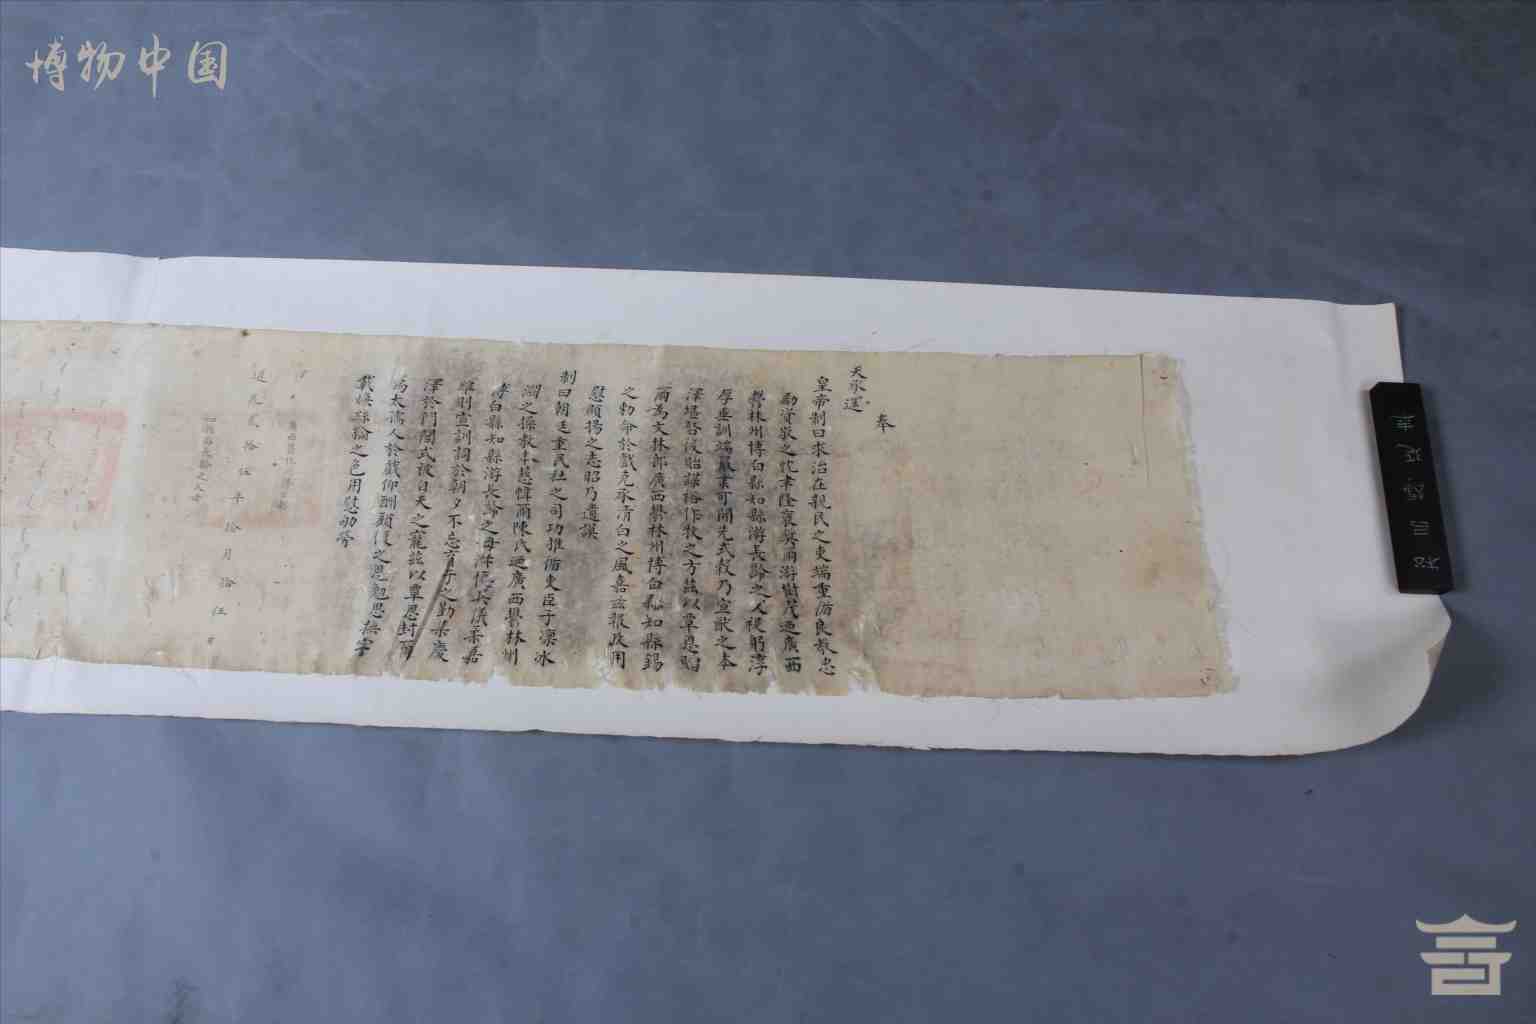 博物中国
奉
天承運
皇帝制曰求治在親民之吏端重循良教忠
勖資敬之忱聿隆褒奬爾游樹茂廼廣西
欝林州博白縣知縣游長齡之父禔躬淳
厚垂訓端嚴業可開先式穀乃宣猷之本
澤堪啓後貽謀裕作牧之方兹以覃恩贈
爾為文林郎廣西欝林州博白縣知縣錫
之勅命於戲克承清白之風嘉兹報政用
慰顯揚之志昭乃遺謨
制曰朝廷重民社之司功推循吏臣子凜冰
淵之操教本慈幃爾陳氏廼廣西欝林州
博白縣知縣游長齡之母淑慎其儀柔嘉
維則宣訓詞於朝夕不忘育子之勤集慶
澤於門閭式被自天之寵兹以覃恩封爾
為太孺人於戲仰酬顧復之恩勉思撫字
載煥絲綸之色用慰劬勞
貳拾伍年拾月拾伍日